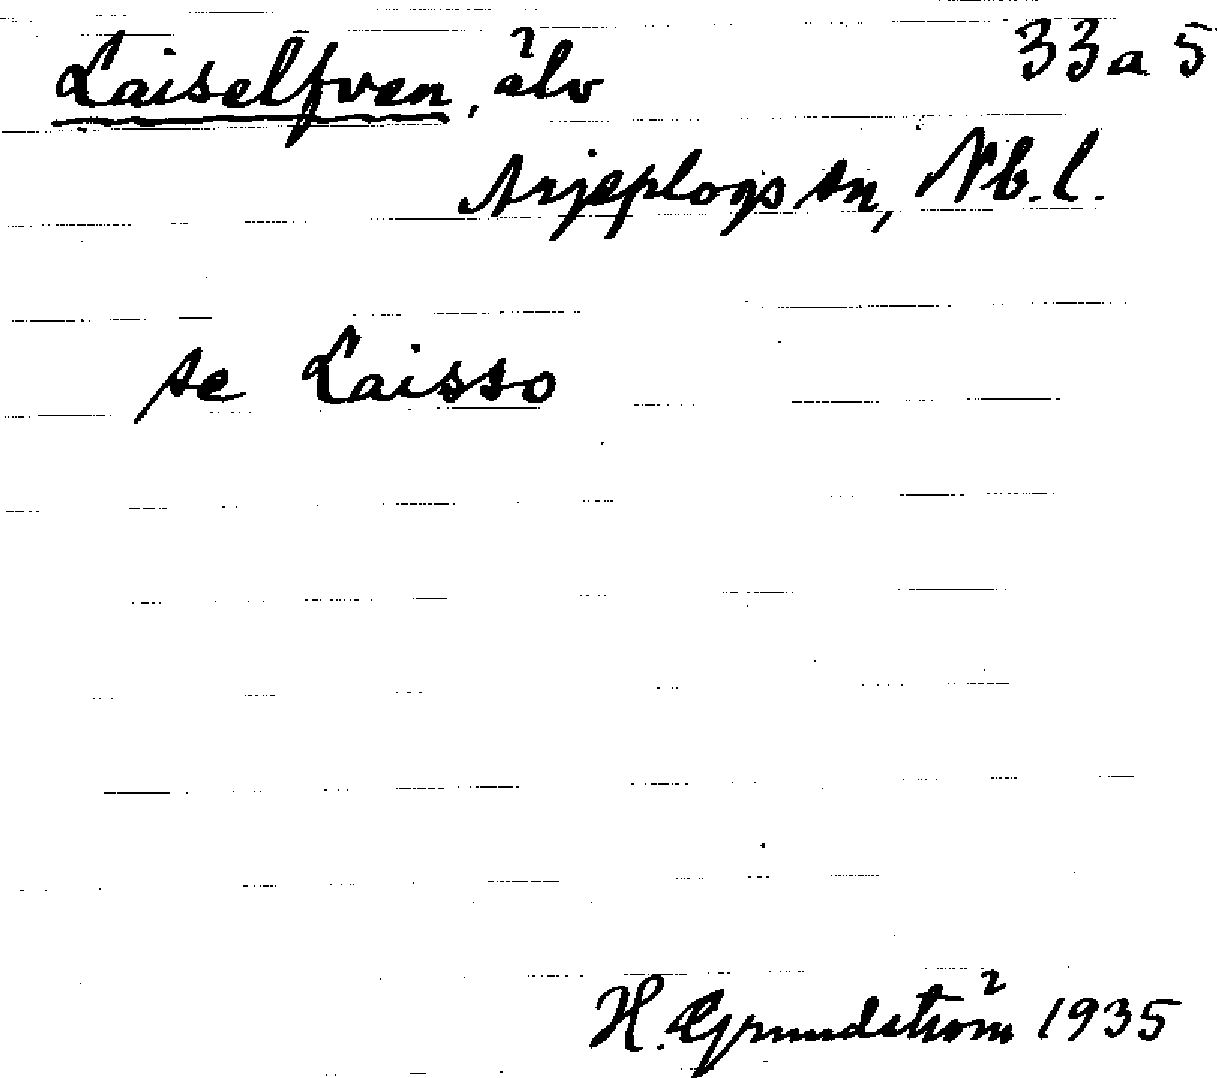 Laiselfven, älv 33a5
Arjeplogs sn, Nb.l.
se Laisso
H. Grundström 1935